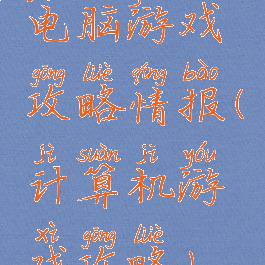 电脑游戏
gōng lüè qíng bào
攻略情报(
jì suàn jī yóu
计算机游
xì gōng lüè
戏攻略)